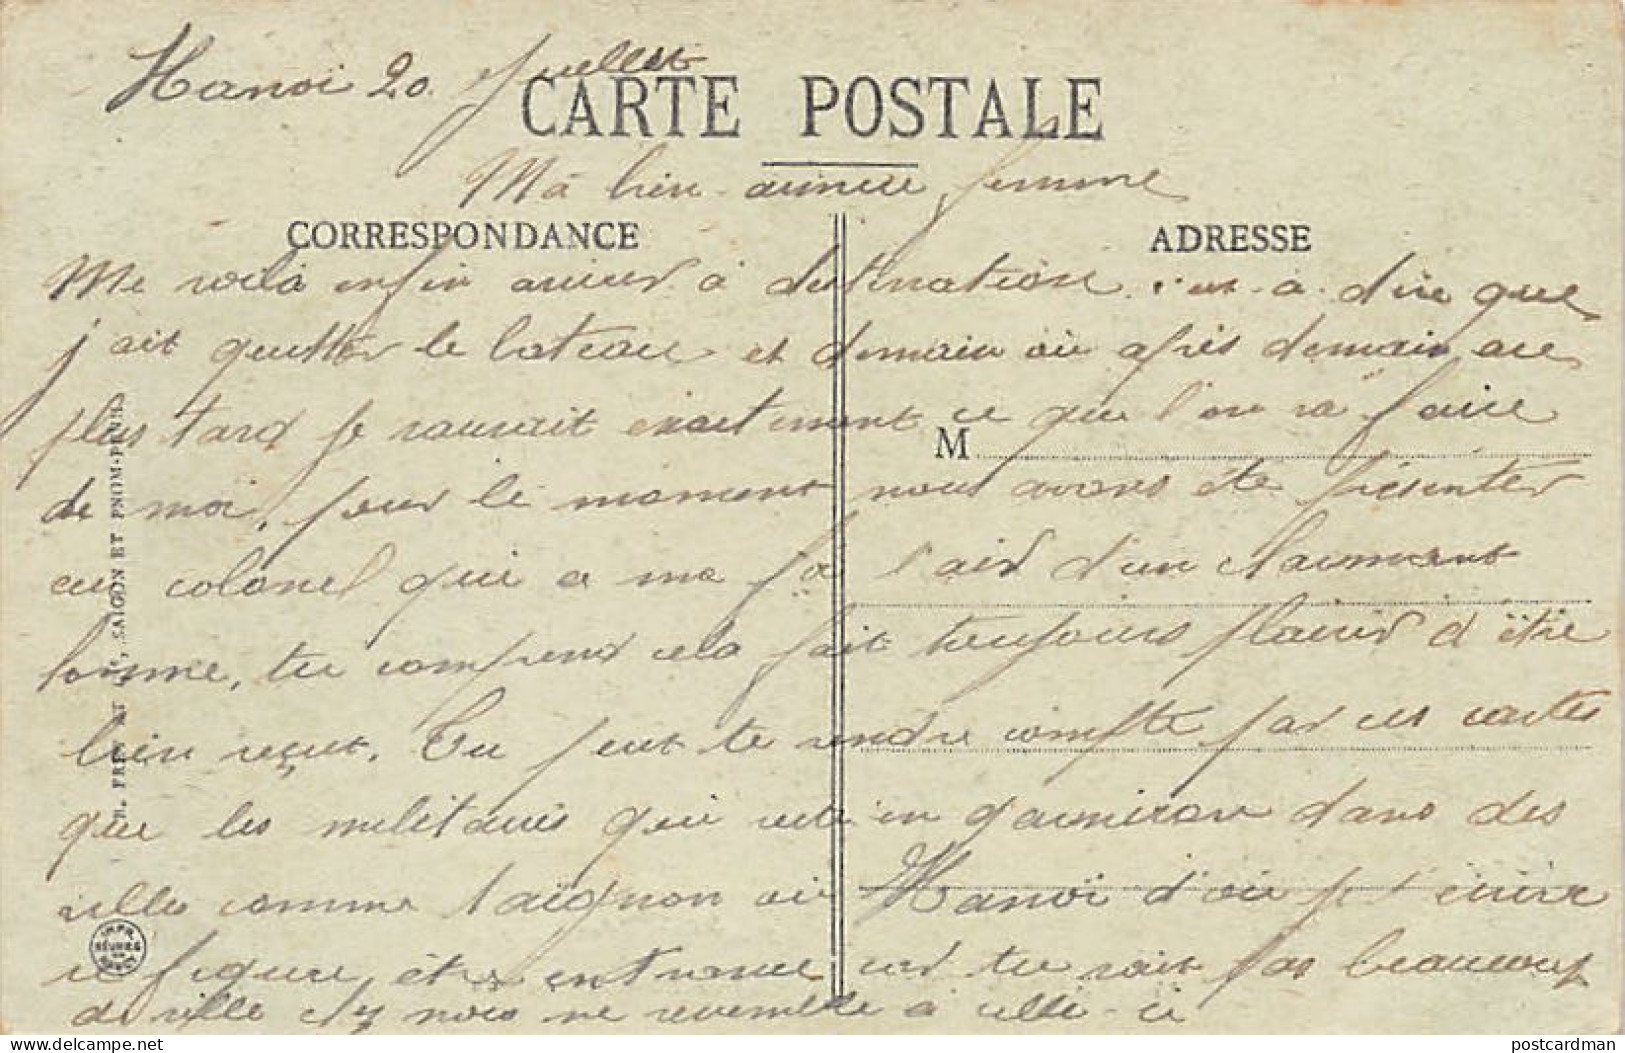 Hanoi 20 Juillet
CARTE POSTALE
Ma bien aimée femme
CORRESPONDANCE
ADRESSE
Me voilà enfin arriver à destination c'est-à-dire que
j'ait quitter le bateau et demain où après demain au
plus tard je saurait exactement ce que l'on va faire
M
de moi, pour le moment nous avons été présenter
au colonel qui a ma foi l'air d'un charmant
homme, tu comprend cela fait toujours plaisir d'être
bien reçut. Tu peut te rendre compte par ces cartes
que les militaires qui sont en garnison dans des
villes comme Saïgnon où Hanoï d'où je t'écrire
se figure être en France car tu voit pas beaucoup
de ville chez nous ne resemble à celle-ci
SAIGON ET PNOM-PENH
postcardman